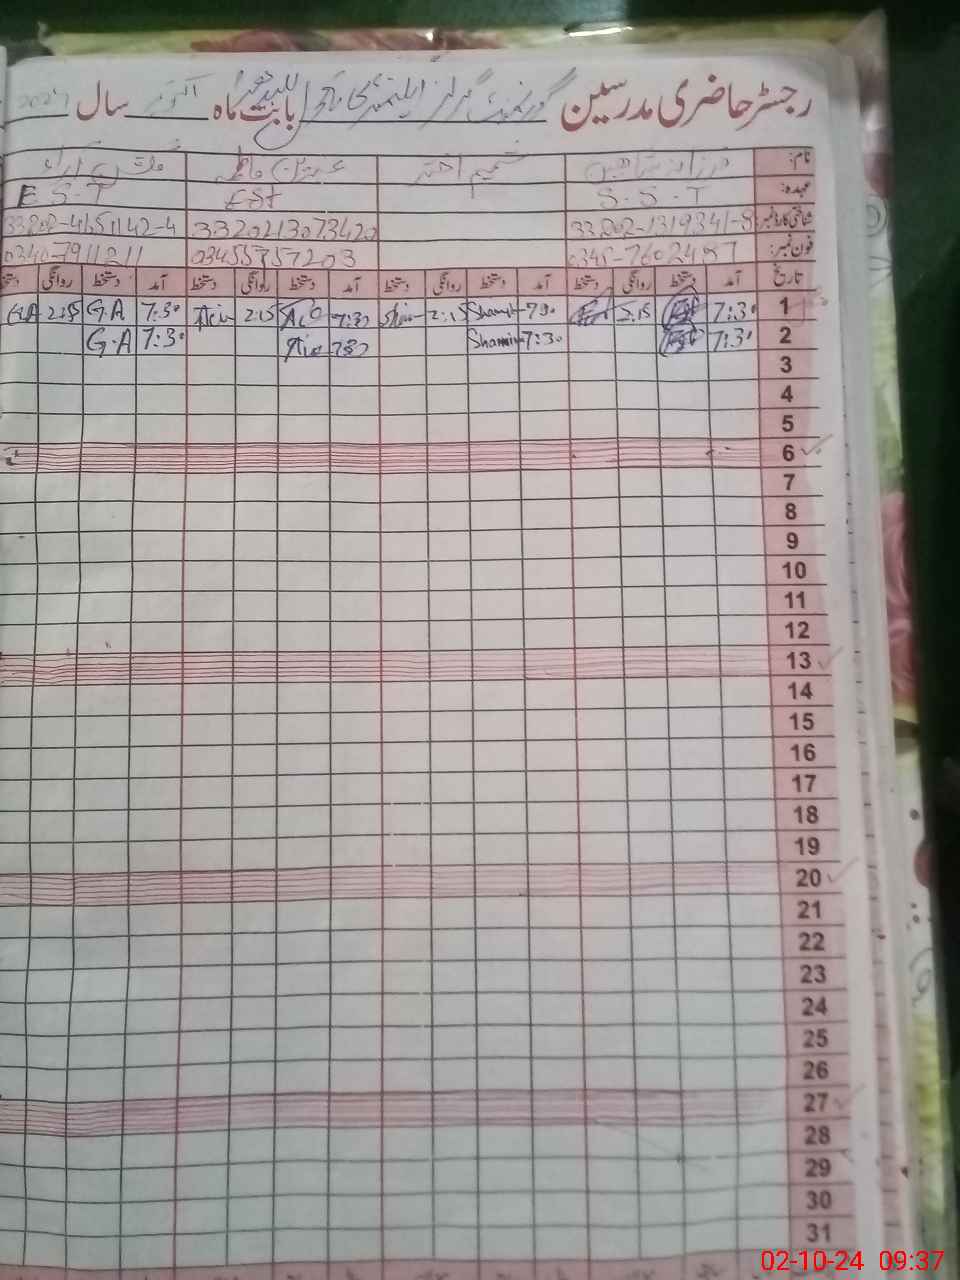 رجسٹر حاضری مدرسین گورنمنٹ گرلز ایلیمنٹری بابت ماہ اکتوبر سال 2024
نام: فرزانہ شاہین شمیم اختر
عہدہ: S.S.T EST E S.T
شناختی کارڈ نمبر: 33202-1319341-8 3320213073420 33202-4151142-4
فون نمبر: 0345-7602487 03455757203 0340-7911211
تاریخ آمد دستخط روانگی دستخط آمد دستخط روانگی دستخط آمد دستخط روانگی دستخط آمد دستخط روانگی دستخط
1 7:30 2:15 7:30 Shamim 2:15 7:30 2:15 7:30 G.A 2:15 G.A
2 7:30 7:30 Shamim 7:30 7:30 G.A
3
4
5
6
7
8
9
10
11
12
13
14
15
16
17
18
19
20
21
22
23
24
25
26
27
28
29
30
31
02-10-24 09:37